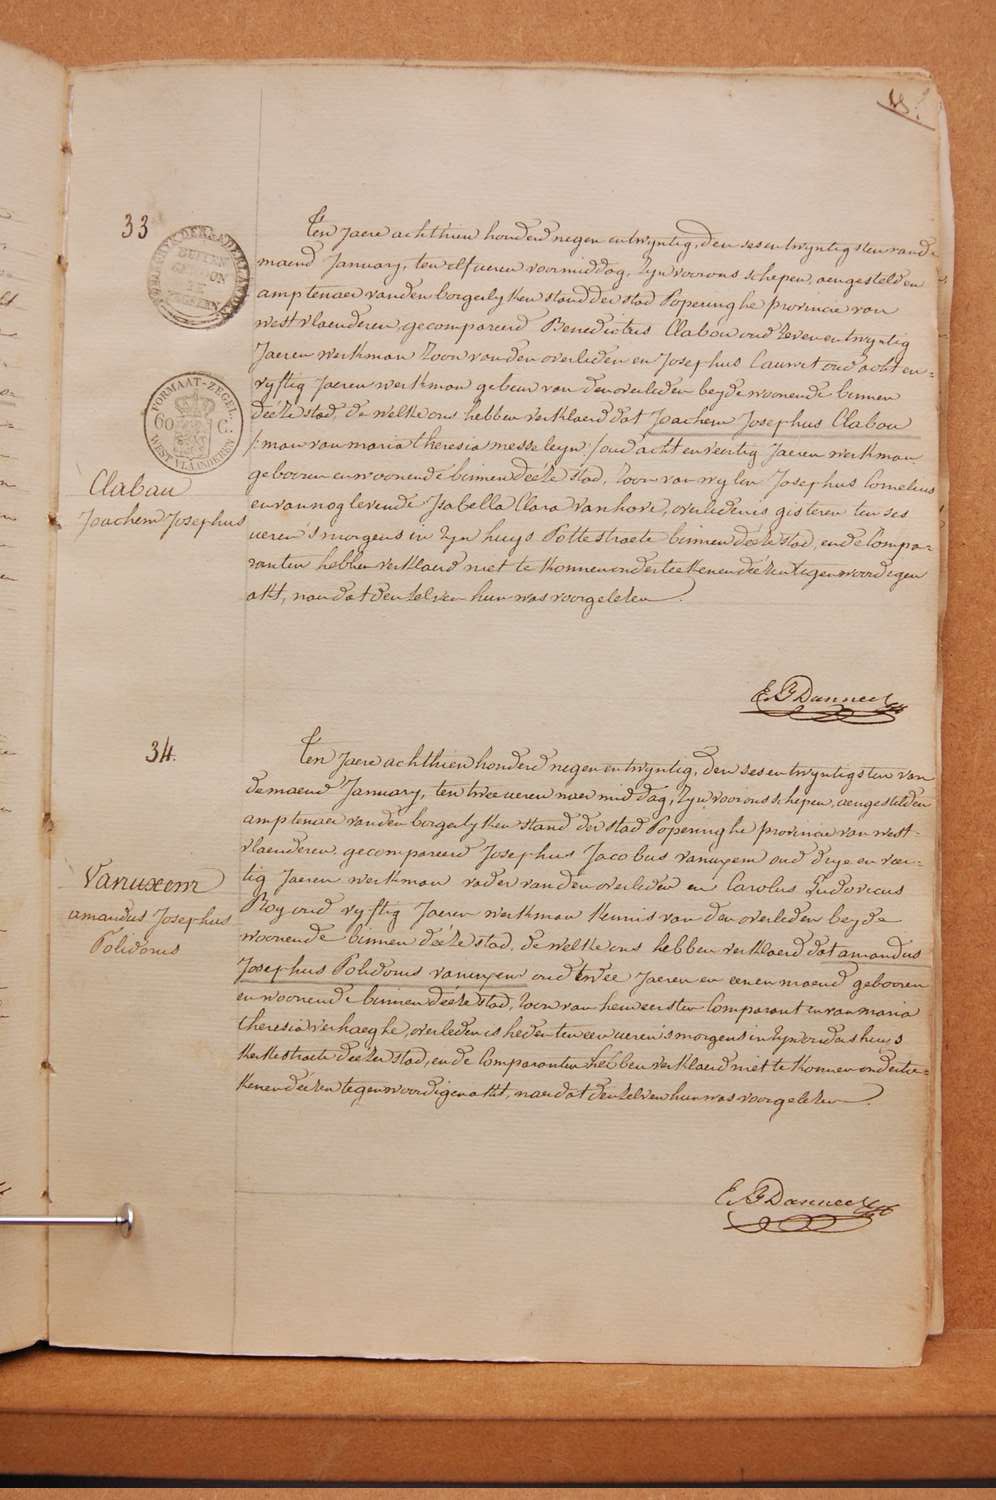 33
Ten Jaere achthien honderd negen en twyntig, den ses en twyntigsten van de
maend January, ten elf ueren voormiddag, zyn voor ons schepen, aengestelden
amptenaer van den borgerlyken stand der stad Poperinghe provincie van
westvlaenderen, gecompareerd Benedictus Clabau oud zeven en twyntig
Jaeren werkman zoon van den overleden en Josephus Cauwet oud acht en=
vyftig Jaeren werkman gebeur van den overleden beyde woonende binnen
deéze stad, de welke ons hebben verklaerd dat Joachem Josephus Clabau
/:man van maria theresia messeleyn/ oud acht en veertig Jaeren werkman
gebooren en woonende binnen deéze stad, zoon van wylen Josephus Cornelius
en van nog levende Isabella Clara vanhove, overleden is gisteren ten ses
ueren 's morgens in zyn huys Pottestraete binnen deéze stad, en de Compa=
ranten hebben verklaerd niet te konnen onderteekenen deézen tegenwoordigen
akt, naer dat den zelven hun was voorgelezen.
VORMAAT-ZEGEL.
60 C.
WEST-VLAANDEREN
Clabau
Joachem Josephus
E. B Danneel
34.
Ten Jaere achthien honderd negen en twyntig, den ses en twyntigsten van
de maend January, ten twee ueren naer middag, zyn voor ons schepen, aengestelden
amptenaer van den borgerlyken stand der stad Poperinghe provincie van west=
vlaenderen, gecompareerd Josephus Jacobus vanuxem oud drye en veer=
tig Jaeren werkman vader van den overleden en Carolus Ludovicus
Roy oud vyftig Jaeren werkman kennis van den overleden beyde
woonende binnen deéze stad, de welke ons hebben verklaerd dat amandus
Josephus Polidorus vanuxem oud twee Jaeren en eenen maend gebooren
en woonende binnen deéze stad, zoon van hem eersten Comparant en van maria
theresia verhaeghe, overleden is heden ten een ueren 's morgens in zyn ouders huys
kerkestraete deézer stad, en de Comparanten hebben verklaerd niet te konnen ondertee=
kenen deézen tegenwoordigen akt, naer dat den zelven hun was voorgelezen.
Vanuxem
amandus Josephus
Polidorus
E. B Danneel